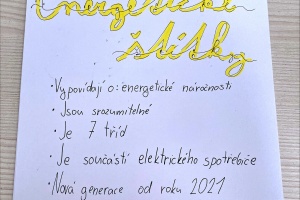 Energetické
štítky
• Vypovídají o: energetické náročnosti
• Jsou srozumitelné
• Je 7 tříd
• Je součástí elektrického spotřebiče
• Nová generace od roku 2021